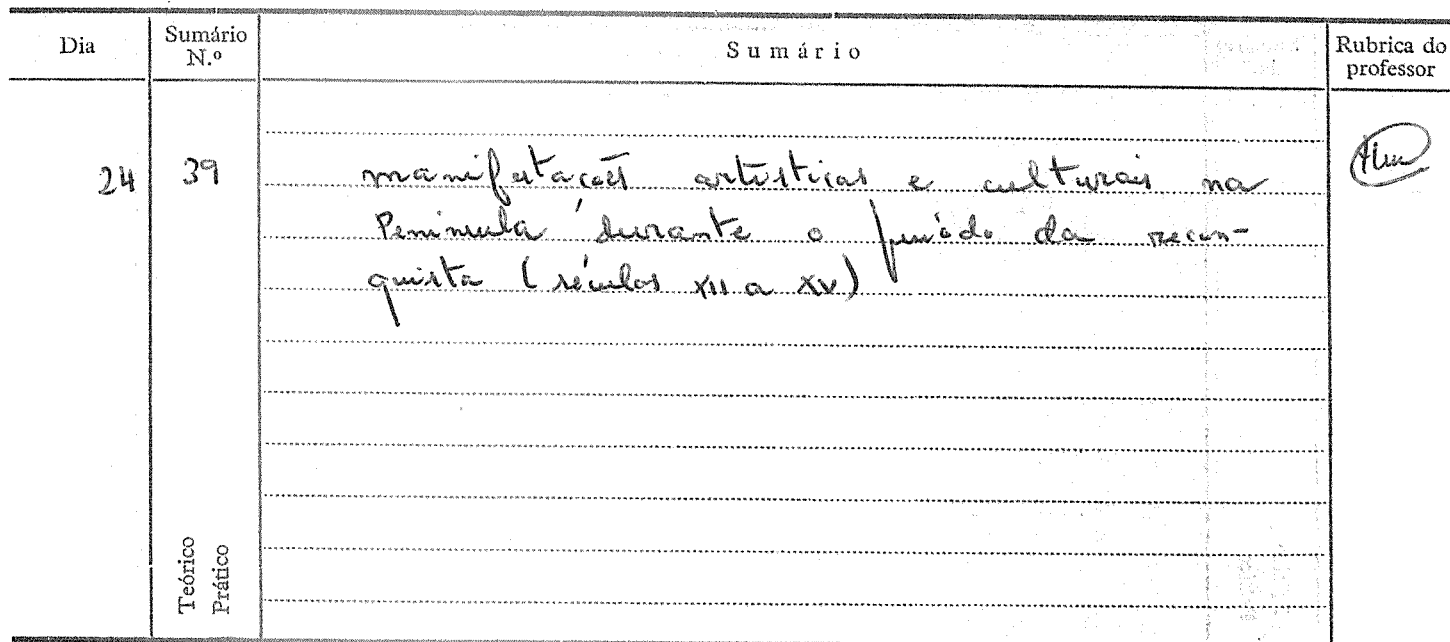 Dia
Sumário N.º
Sumário
Rubrica do professor
24 39 manifestações artísticas e culturais na
Península durante o período da recon-
quista (séculos XII a XV)
Teórico
Prático